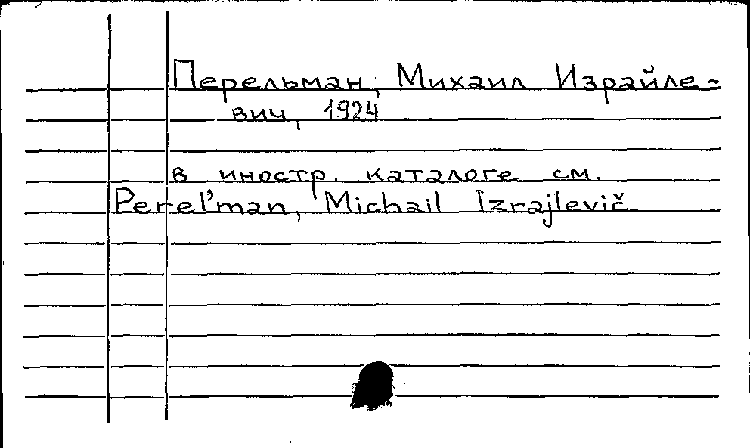 Перельман, Михаил Израйле-
вич, 1924
в иностр. каталоге см.
Perel'man, Michail Izrajlevič